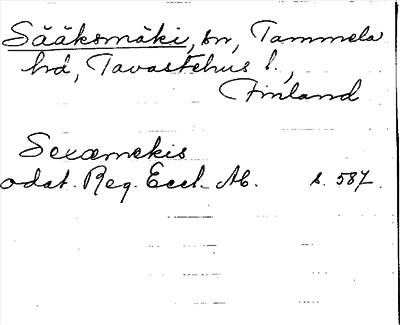 Sääksmäki, sn, Tammela
hd, Tavastehus l.,
Finland
Sexæmekis
odat. Reg. Eccl. Ab. s. 587.